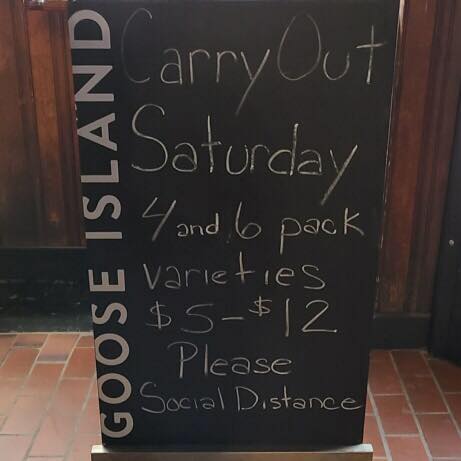 GOOSE ISLAND
Carry Out
Saturday
4 and 6 pack
varieties
$5-$12
Please
Social Distance